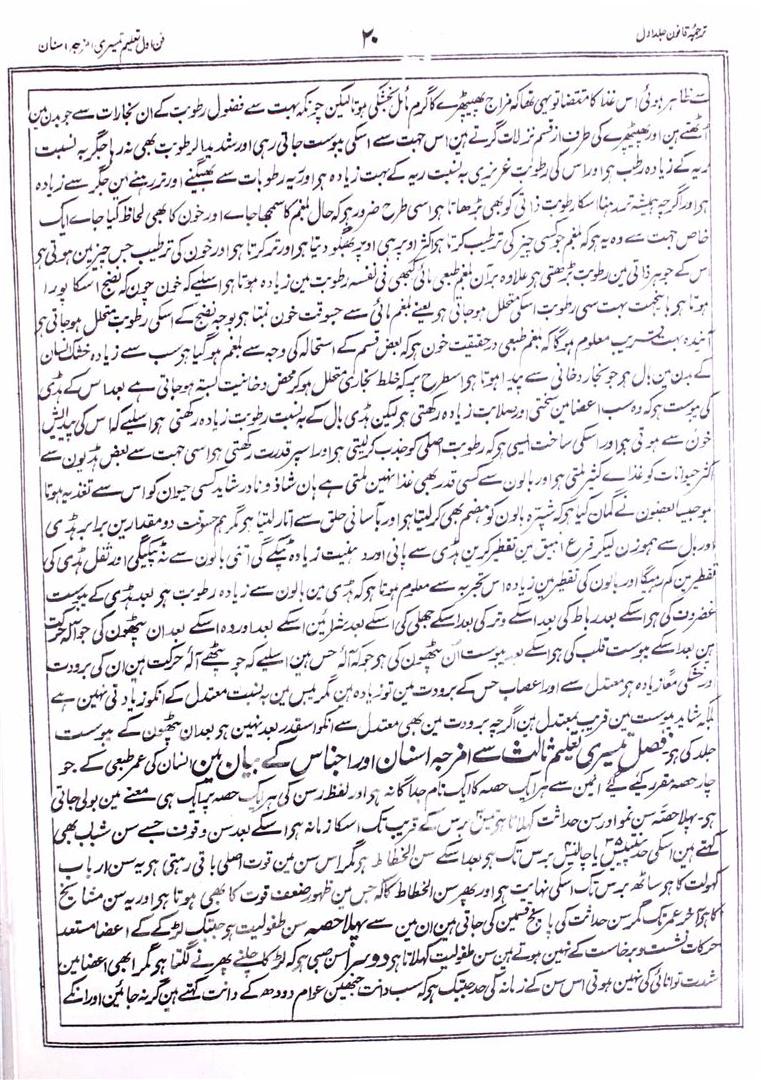 ترجمۂ قانون جلد اول
۲۰
فن اول تعلیم تیسری امزجہ اسنان
سے ظاہر ہوئی اس غذا کا مقتضا تو یہی تھا کہ مزاج پھیپھڑے کا گرم مائل بخشکی ہوتا لیکن چونکہ بہت سے فضول رطوبت کے ان بخارات سے جو بدن مین
اُٹھتے ہین اور پھیپھڑے کی طرف از قسم نزلات گرتے ہین اس جہت سے اسکی یبوست جاتی رہی اور شدید الرطوبت بھی نہ رہا جگر بہ نسبت
ریہ کے زیادہ رطب ہو اور اس کی رطوبت غریزی بہ نسبت ریہ کے بہت زیادہ ہو اور ریہ رطوبات سے بھیگنے اور تر رہنے مین جگر سے زیادہ
ہو اور اگرچہ ہمیشہ تر رہنا اسکا رطوبت ذاتی کو بھی بڑھاتا ہو اسی طرح ضرور ہو کہ حال بلغم کا سمجھا جاے اور خون کا بھی لحاظ کیا جاے ایک
خاص جہت سے وہ یہ ہو کہ بلغم جو کسی چیز کی ترطیب کرتا ہو اکثر اوپر ہی اوپر بھگو دیتا ہو اور تر کرتا ہو اور خون کی ترطیب جس چیز مین ہوتی ہو
اس کے جوہر ذاتی مین رطوبت بڑھتی ہو علاوہ برآن بلغم طبعی مائی کبھی فی نفسہ رطوبت مین زیادہ ہوتا ہو اسلیے کہ خون چون کہ نضج اسکا پورا
ہوتا ہو باینجہت بہت سی رطوبت اسکی متحلل ہو جاتی ہو یعنے بلغم مائی سے جسوقت خون بنتا ہو بوجہ نضج کے اسکی رطوبت متحلل ہو جاتی ہو
آئندہ بہت قریب معلوم ہوگا کہ بلغم طبعی در حقیقت خون ہو کہ بعض قسم کے استحالہ کی وجہ سے بلغم ہو گیا ہو سب سے زیادہ خشک انسان
کے بدن مین بال ہو جو بخار دخانی سے پیدا ہوتا ہو اسطرح پر کہ خلط بخاری متحلل ہو کر محض دخانیت بستہ ہو جاتی ہے بعد اس کے ہڈی
کی یبوست ہو کہ وہ سب اعضا مین سختی اور صلابت زیادہ رکھتی ہو لیکن ہڈی بال کے بہ نسبت رطوبت زیادہ رکھتی ہو اسلیے کہ اس کی پیدایش
خون سے ہوتی ہو اور اسکی ساخت ایسی ہو کہ رطوبت اصلی کو جذب کر لیتی ہو اور اسپر قدرت رکھتی ہو اسی جہت سے بعض ہڈیون سے
اکثر حیوانات کو غذاے کثیر ملتی ہو اور بالون سے کسی قدر بھی غذا نہین ملتی ہے ہان شاذ و نادر شاید کسی حیوان کو اس سے تغذیہ ہوتا
ہو جیسا بعضون نے گمان کیا ہو کہ شپرہ بالون کو ہضم بھی کر لیتا ہو اور بآسانی حلق سے اتار لیتا ہو مگر ہم جسوقت دو مقدارین برابر ہڈی
اور بال سے ہموزن لیکر قرع انبیق مین تقطیر کرین ہڈی سے پانی اور دہنیت زیادہ ٹپکے گی اتنی بالون سے نہ ٹپکیگی اور ثفل ہڈی کی
تقطیر مین کم رہیگا اور بالون کی تقطیر مین زیادہ اس تجربہ سے معلوم ہوتا ہو کہ ہڈی مین بالون سے زیادہ رطوبت ہو بعد ہڈی کے یبوست
غضروف کی ہو اسکے بعد رباط کی بعد اسکے وتر کی بعد اسکے جھلی کی اسکے بعد شرائین اسکے بعد اوردہ اسکے بعد ان پٹھون کی جو آلہ حرکت
ہین بعد اسکے یبوست قلب کی ہو اسکے بعد یبوست اُن پٹھون کی ہو جو کہ آلۂ حس ہین اسلیے کہ جو پٹھے آلۂ حرکت ہین ان کی برودت
اور خشکی معًا زیادہ ہو معتدل سے اور اعصاب حس کے برودت مین تو زیادہ ہین مگر یبس مین بہ نسبت معتدل کے انکو زیادتی نہین ہے
بلکہ شاید یبوست مین قریب بمعتدل ہین اگرچہ برودت مین بھی معتدل سے انکو اسقدر بعد نہین ہو بعد ان پٹھون کے یبوست
جلد کی ہو فصل تیسری تعلیم ثالث سے امزجہ اسنان اور اجناس کے بیان مین انسان کی عمر طبعی کے جو
چار حصہ مقرر کیئے گئے انمین سے ہر ایک حصہ کا ایک نام جداگانہ ہو اور لفظ سن کی ہر ایک حصہ پر ایک ہی معنے مین بولی جاتی
ہو پہلا حصّہ سن نمو اور سن حداثت کہلاتا ہو تیس برس کے قریب تک اسکا زمانہ ہو اسکے بعد سن وقوف جسے سن شباب بھی
کہتے ہین اسکی حد پینتیس ۳۵ یا چالیس ۴۰ برس تک ہو بعد اسکے سن انحطاط ہو مگر اس سن مین قوت اصلی باقی رہتی ہو یہ سن ارباب
کہولت کا ہو ساٹھ برس تک اسکی نہایت ہو اور پھر سن انحطاط کا کہ جس مین ظہور ضعف قوت کا بھی ہوتا ہو اور یہ سن مشایخ
کا ہو آخر عمر تک مگر سن حداثت کی پانچ قسمین کی جاتی ہین ان مین سے پہلا حصہ سن طفولیت ہو جبتک لڑکے کے اعضا مستعد
حرکات نشست و برخاست کے نہین ہوتے ہین سن طفولیت کہلاتا ہو دوسرا سن صبی ہو کہ لڑکا چلنے پھرنے لگتا ہو مگر ابھی اعضا مین
شدت توانائی کی نہین ہوتی اس سن کے زمانہ کی حد جبتک ہو کہ سب دانت جنھین عوام دودھ کے دانت کہتے ہین گر نہ جائین اور انکے